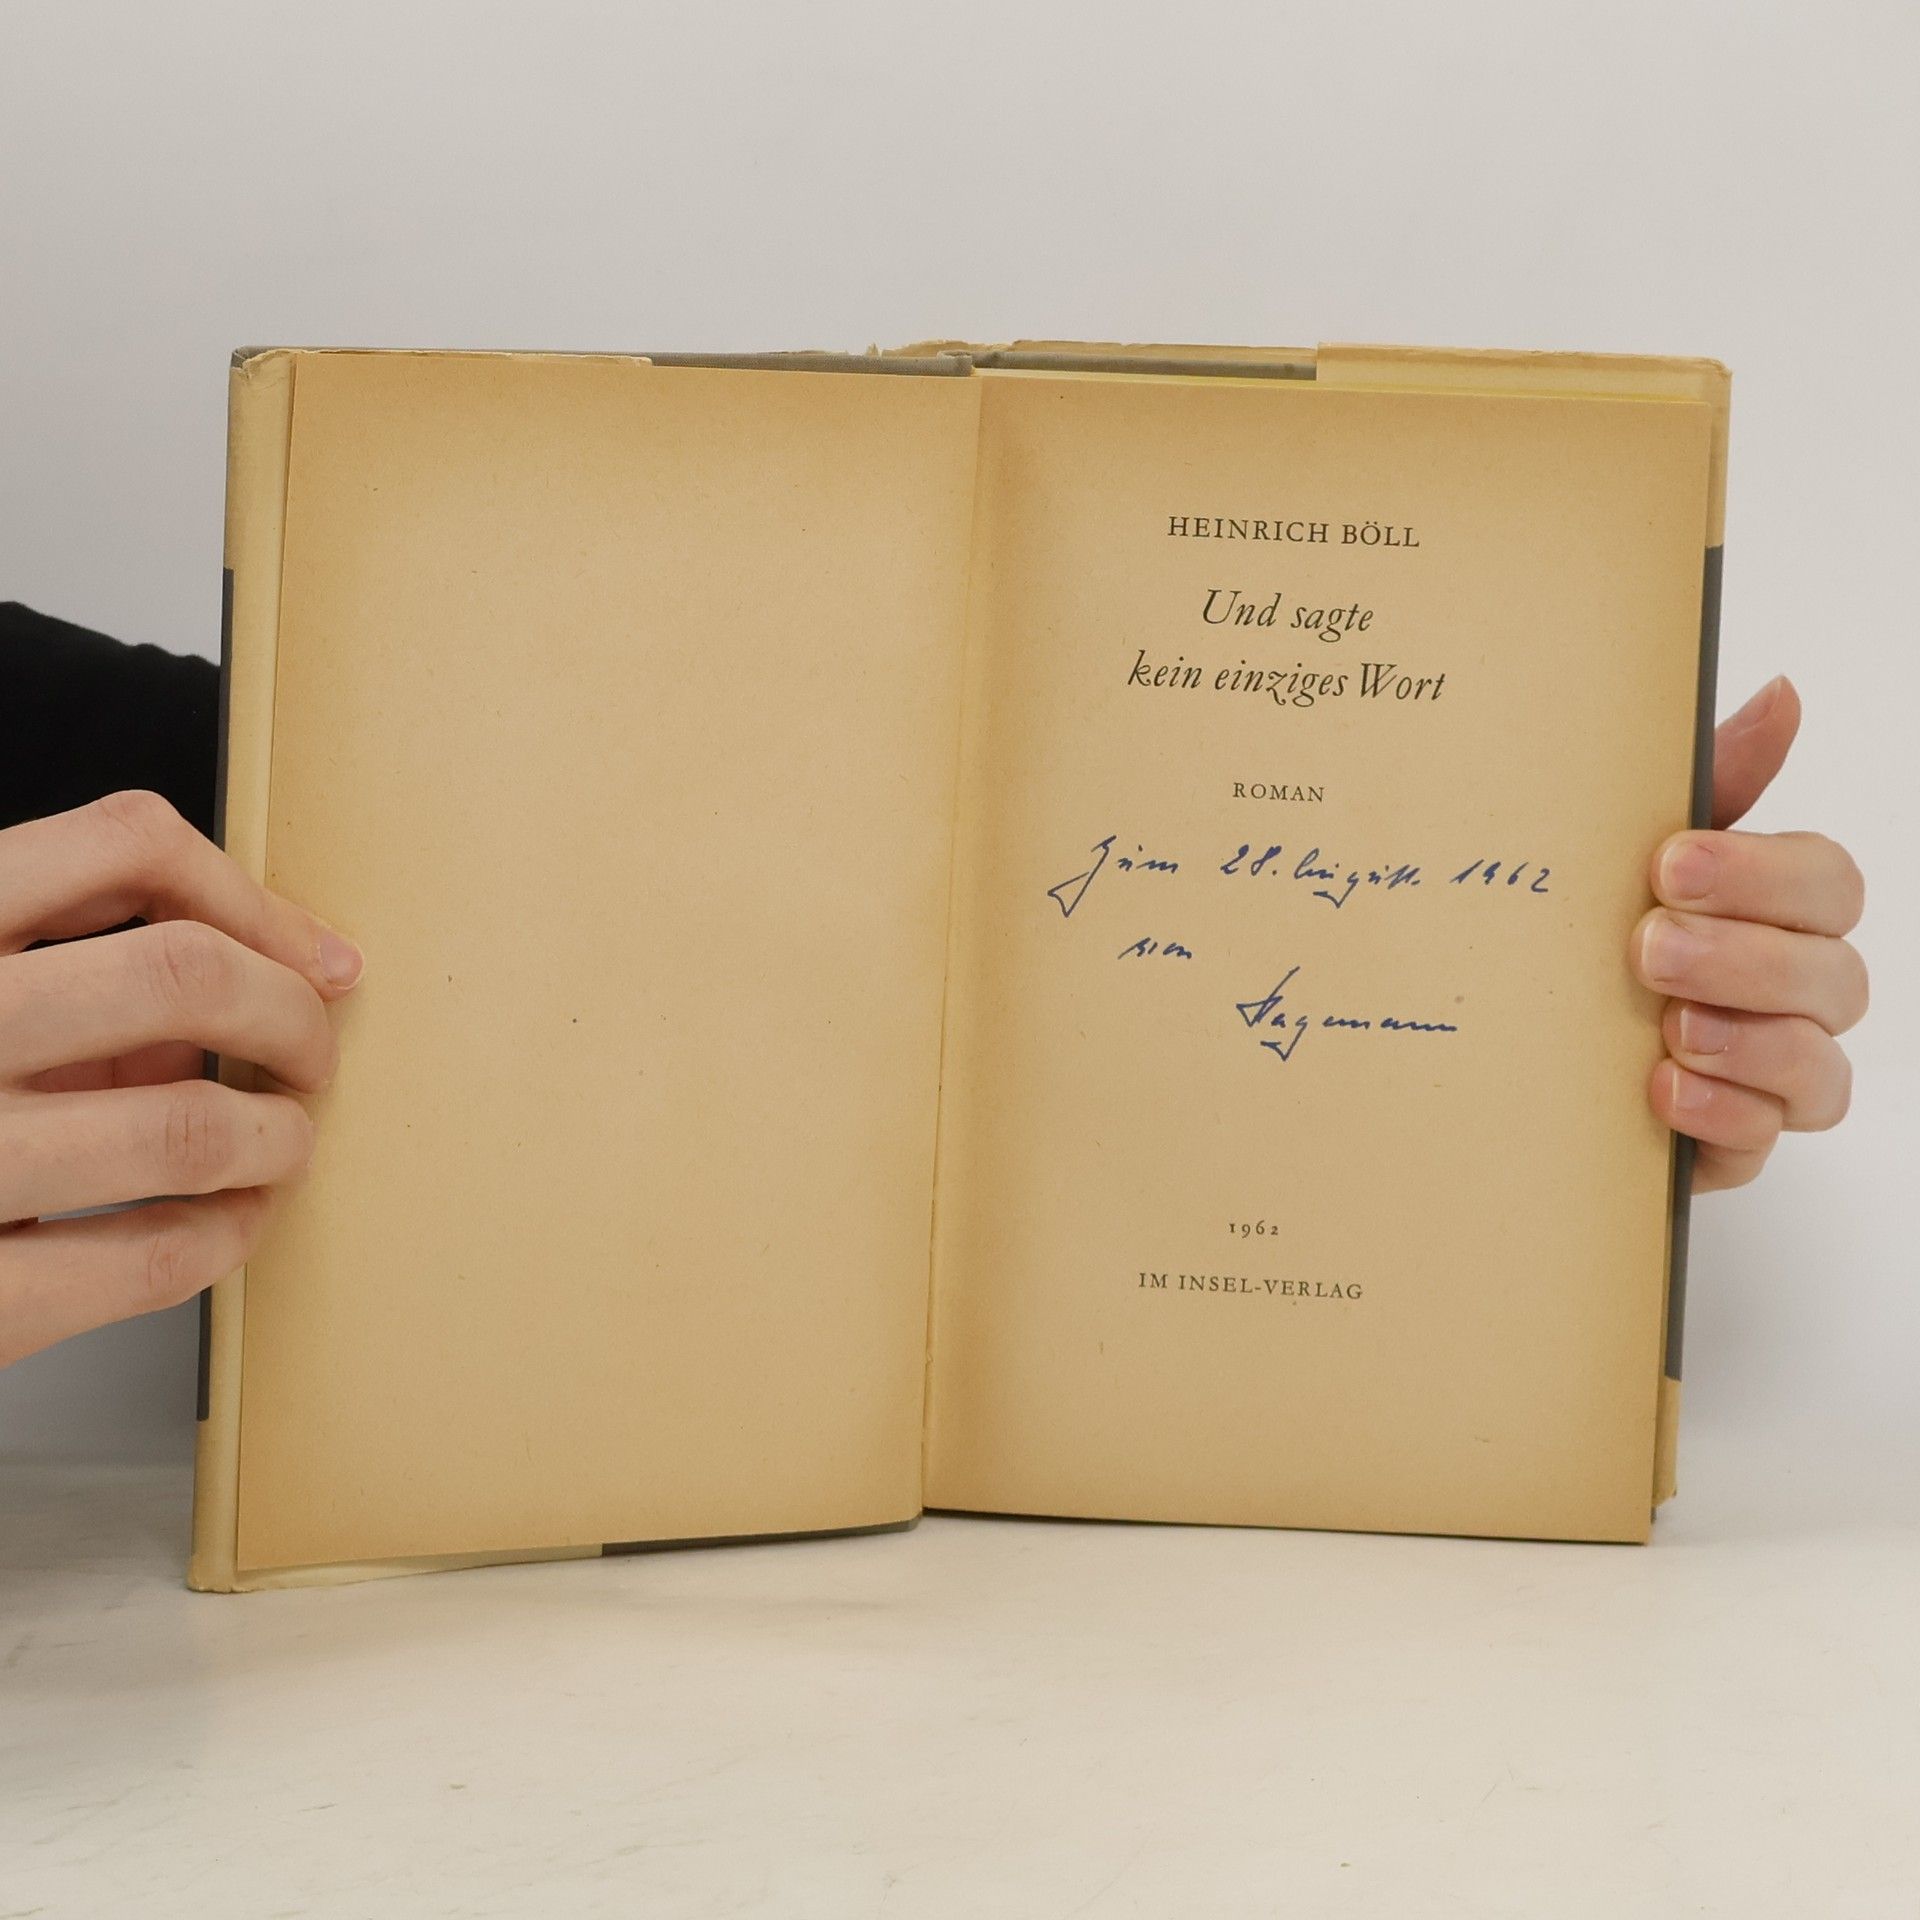 HEINRICH BÖLL
Und sagte
kein einziges Wort
ROMAN
Zum 28. August. 1962
von
Hagemann
1962
IM INSEL-VERLAG